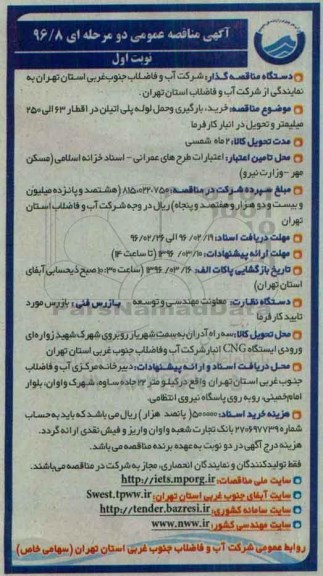 آگهی مناقصه عمومی دو مرحله ای ۹۶/۸
نوبت اول
دستگاه مناقصه گذار: شرکت آب و فاضلاب جنوب غربی استان تهران به
نمایندگی از شرکت آب و فاضلاب استان تهران.
موضوع مناقصه: خرید، بارگیری وحمل لوله پلی اتیلن در اقطار ۶۳ الی ۲۵۰
میلیمتر و تحویل در انبار کارفرما
مدت تحویل کالا: ۲ ماه شمسی
محل تامین اعتبار: اعتبارات طرح های عمرانی - اسناد خزانه اسلامی (مسکن
مهر - وزارت نیرو)
مبلغ سپرده شرکت در مناقصه: ۸۱۵،۰۲۲،۷۵۰ (هشتصد و پانزده میلیون
و بیست و دو هزار و هفتصد و پنجاه) ریال در وجه شرکت آب و فاضلاب استان
تهران
مهلت دریافت اسناد: ۹۶/۰۲/۱۹ الی ۹۶/۰۲/۲۶
مهلت ارائه پیشنهادات: ۱۳۹۶/۰۳/۱۰ (تا ساعت ۱۴)
تاریخ بازگشایی پاکات الف: ۱۳۹۶/۰۳/۱۶ (ساعت ۱۰:۳۰ صبح ذیحسابی آبفای
استان تهران)
دستگاه نظارت: معاونت مهندسی و توسعه - بازرس فنی: بازرس مورد
تایید کارفرما
محل تحویل کالا: سه راه آدران به سمت شهریار روبروی شهرک شهید زواره ای
ورودی ایستگاه CNG انبار شرکت آب و فاضلاب جنوب غربی استان تهران
محل دریافت اسناد و ارائه پیشنهادات: دبیرخانه مرکزی آب و فاضلاب
جنوب غربی استان تهران واقع در کیلو متر ۲۲ جاده ساوه، شهرک واوان، بلوار
امام خمینی، روبه روی پاسگاه نیروی انتظامی.
هزینه خرید اسناد: ۵۰۰۰۰۰ (پانصد هزار) ریال می باشد که باید به حساب
شماره ۲۷۰۶۹۷۷۳۹ بانک تجارت شعبه واوان واریز و فیش نقدی ارائه گردد.
هزینه درج آگهی در دو نوبت به عهده برنده مناقصه می باشد.
فقط تولیدکنندگان و نمایندگان انحصاری، مجاز به شرکت در مناقصه می باشند.
سایت ملی مناقصات: http://iets.mporg.ir
سایت آبفای جنوب غربی استان تهران: Swest.tpww.ir
سایت سامانه کشوری: http://tender.bazresi.ir
سایت مهندسی کشور: www.nww.ir
روابط عمومی شرکت آب و فاضلاب جنوب غربی استان تهران (سهامی خاص)